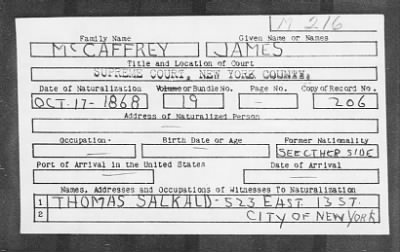 M 216
Family Name Given Name or Names
McCAFFREY JAMES
Title and Location of Court
SUPREME COURT, NEW YORK COUNTY.
Date of Naturalization Volume or Bundle No. Page No. Copy of Record No.
OCT. 17 - 1868 19 — 206
Address of Naturalized Person
—
Occupation Birth Date or Age Former Nationality
— — SEE OTHER SIDE
Port of Arrival in the United States Date of Arrival
— —
Names, Addresses and Occupations of Witnesses To Naturalization
1 THOMAS SALKALD - 523 EAST 13 ST.
2 CITY OF NEW YORK